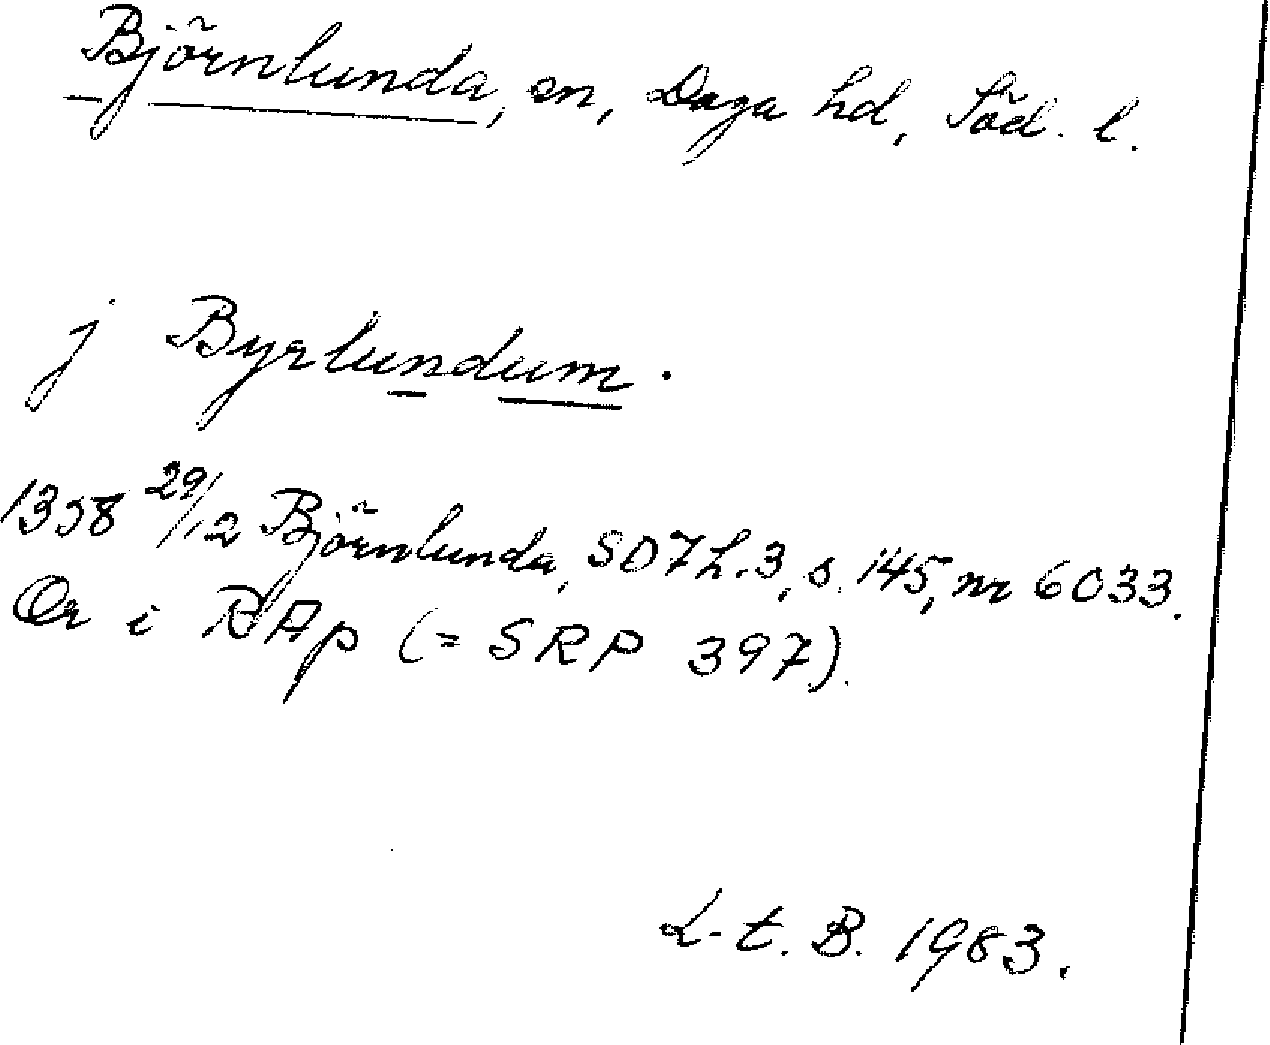 Björnlunda, sn, Daga hd, Söd. l.
j Byrlundum.
1358 29/12 Björnlunda, SD7 h.3, s. 145, nr 6033.
Or i RAp (= SRP 397).
L. t. B. 1983.